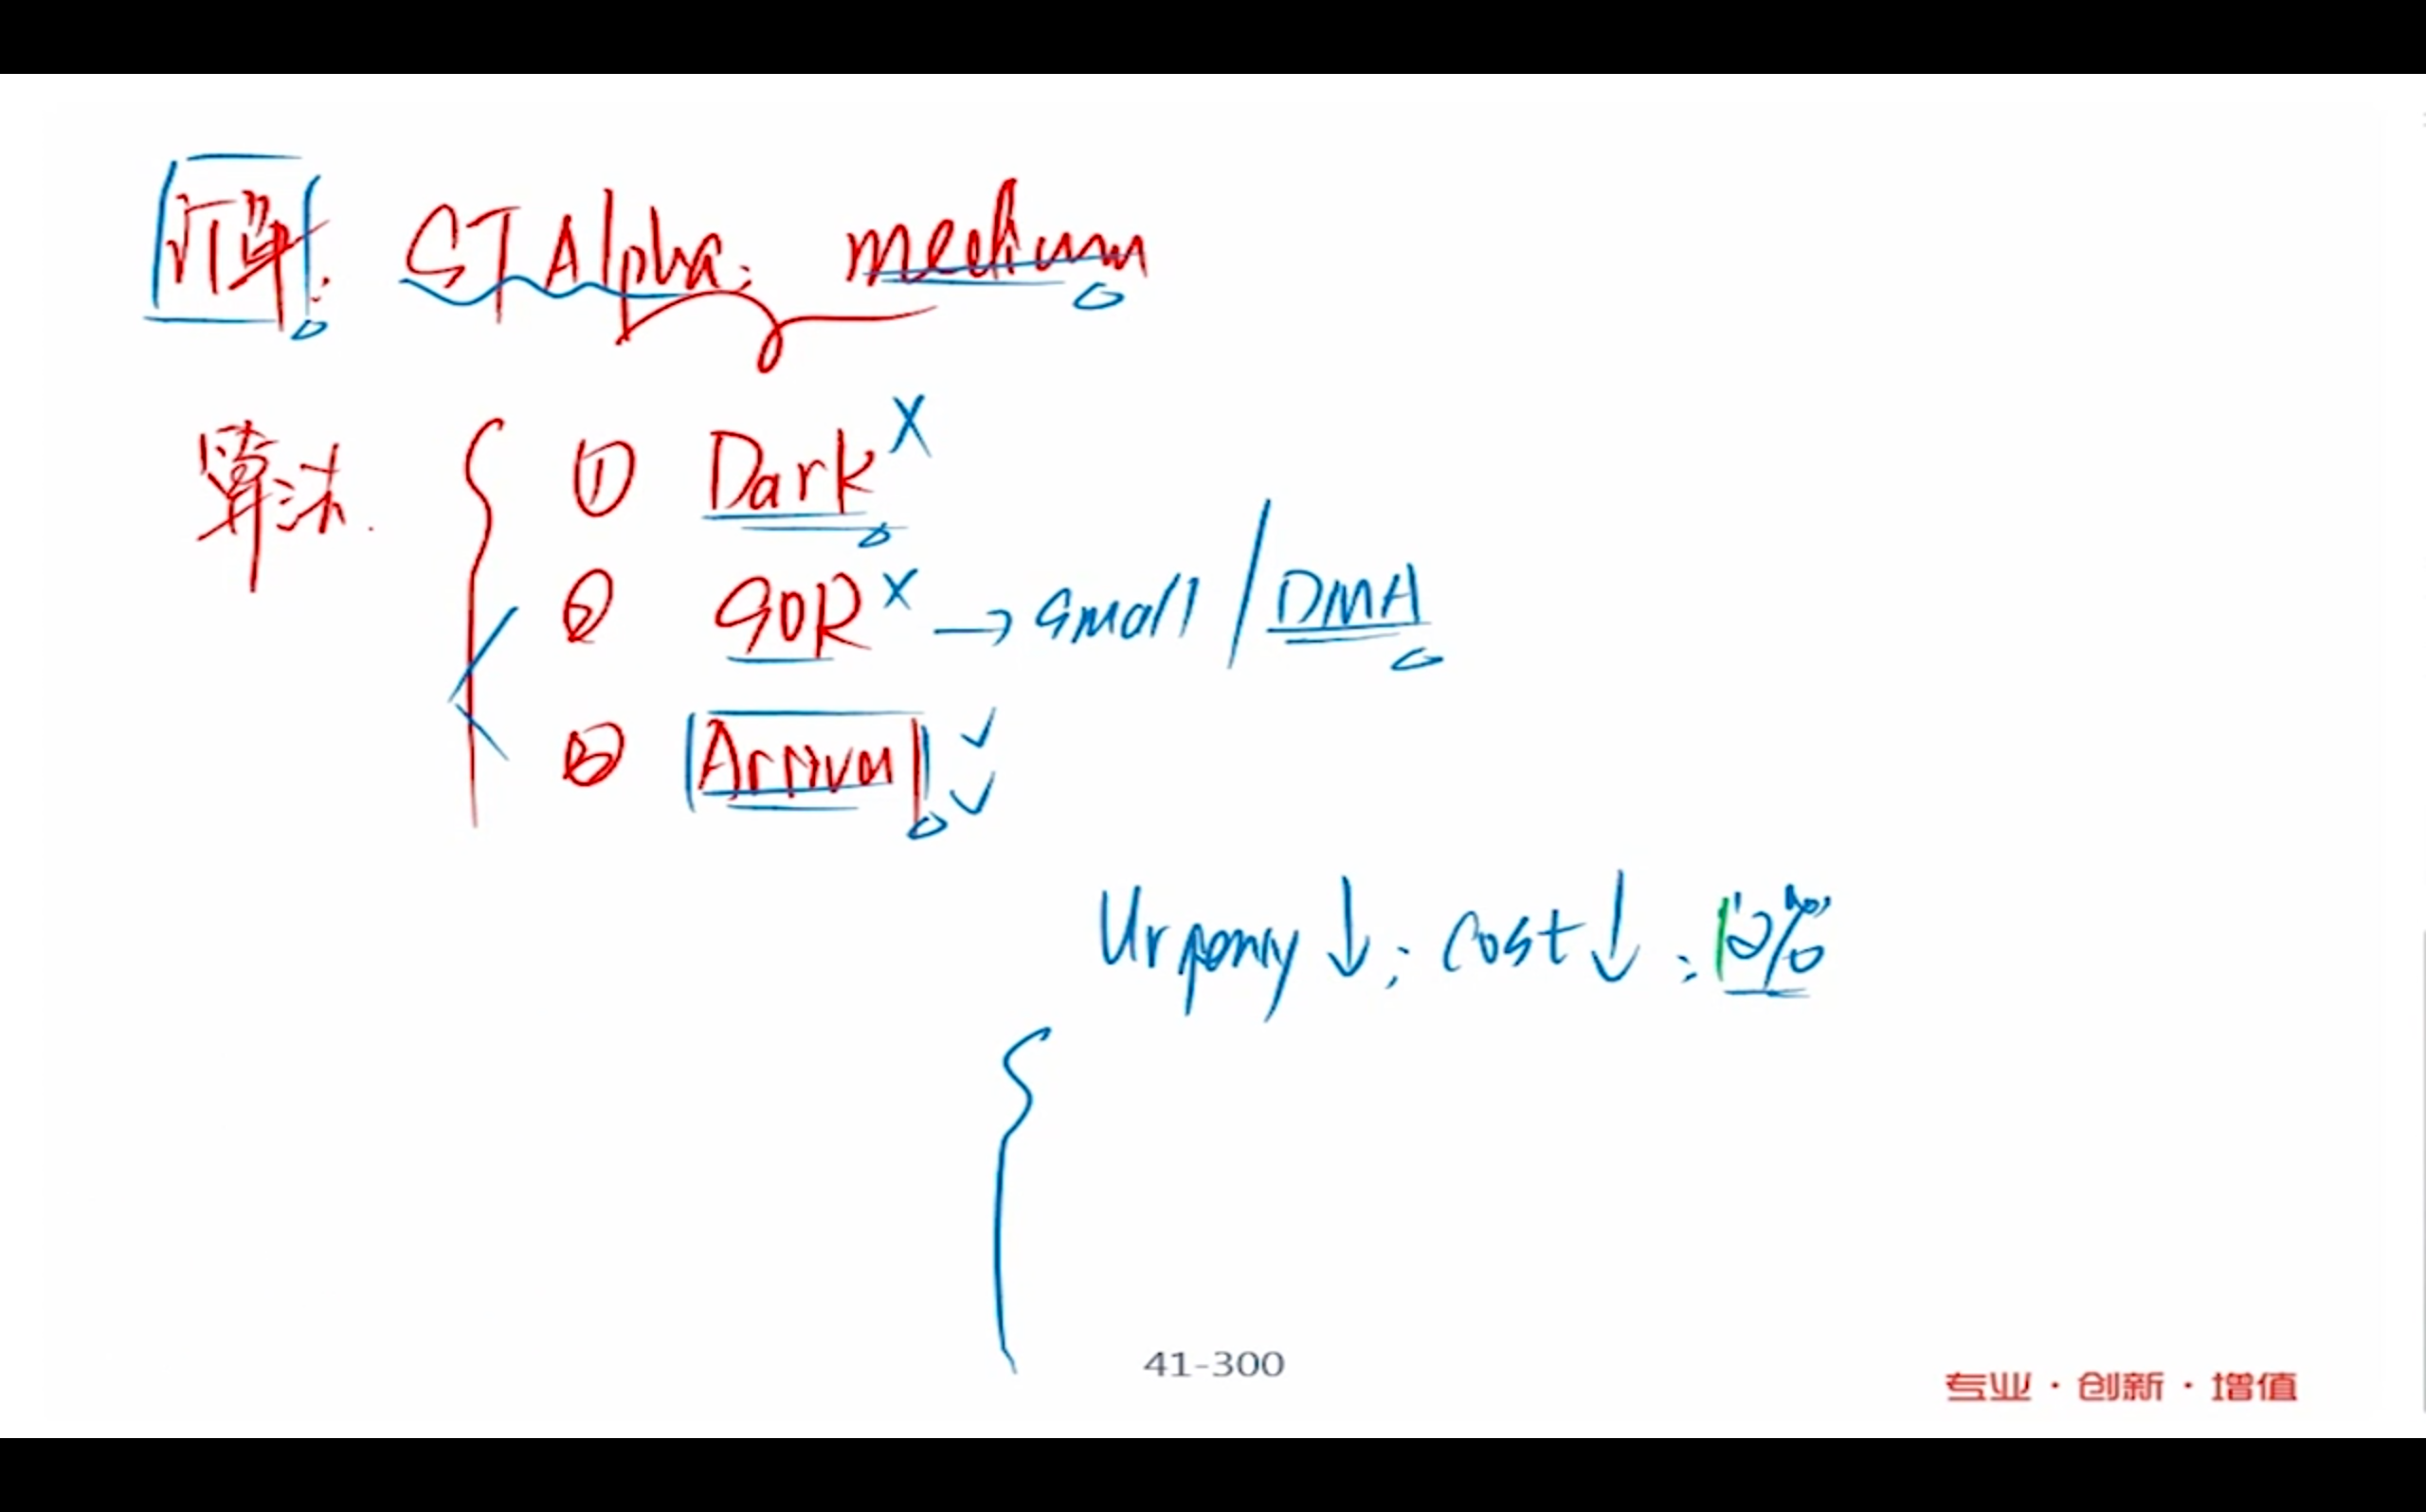 订单: ST Alpha; medium
算法. ① Dark ×
② SOR × → small / DMA
③ Arrival ✓ ✓
Urgency ↓; cost ↓:
41-300
专业·创新·增值